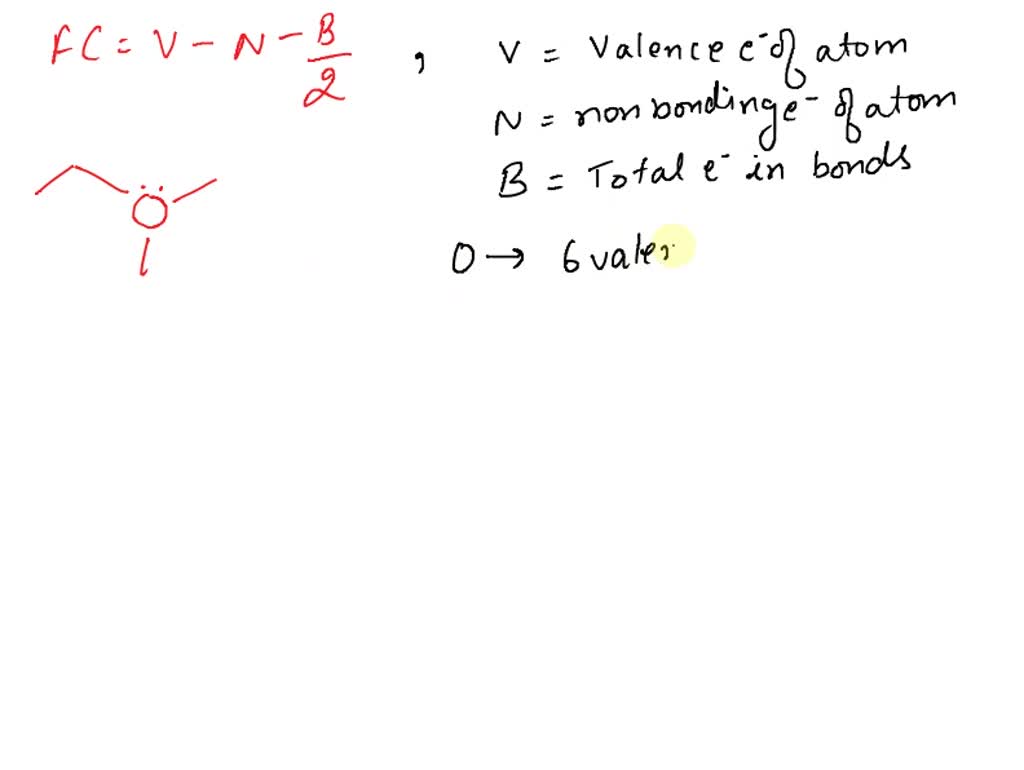 FC = V - N - B/2 , V = Valence e⁻ of atom
N = nonbonding e⁻ of atom
B = Total e⁻ in bonds
O
O → 6 valen